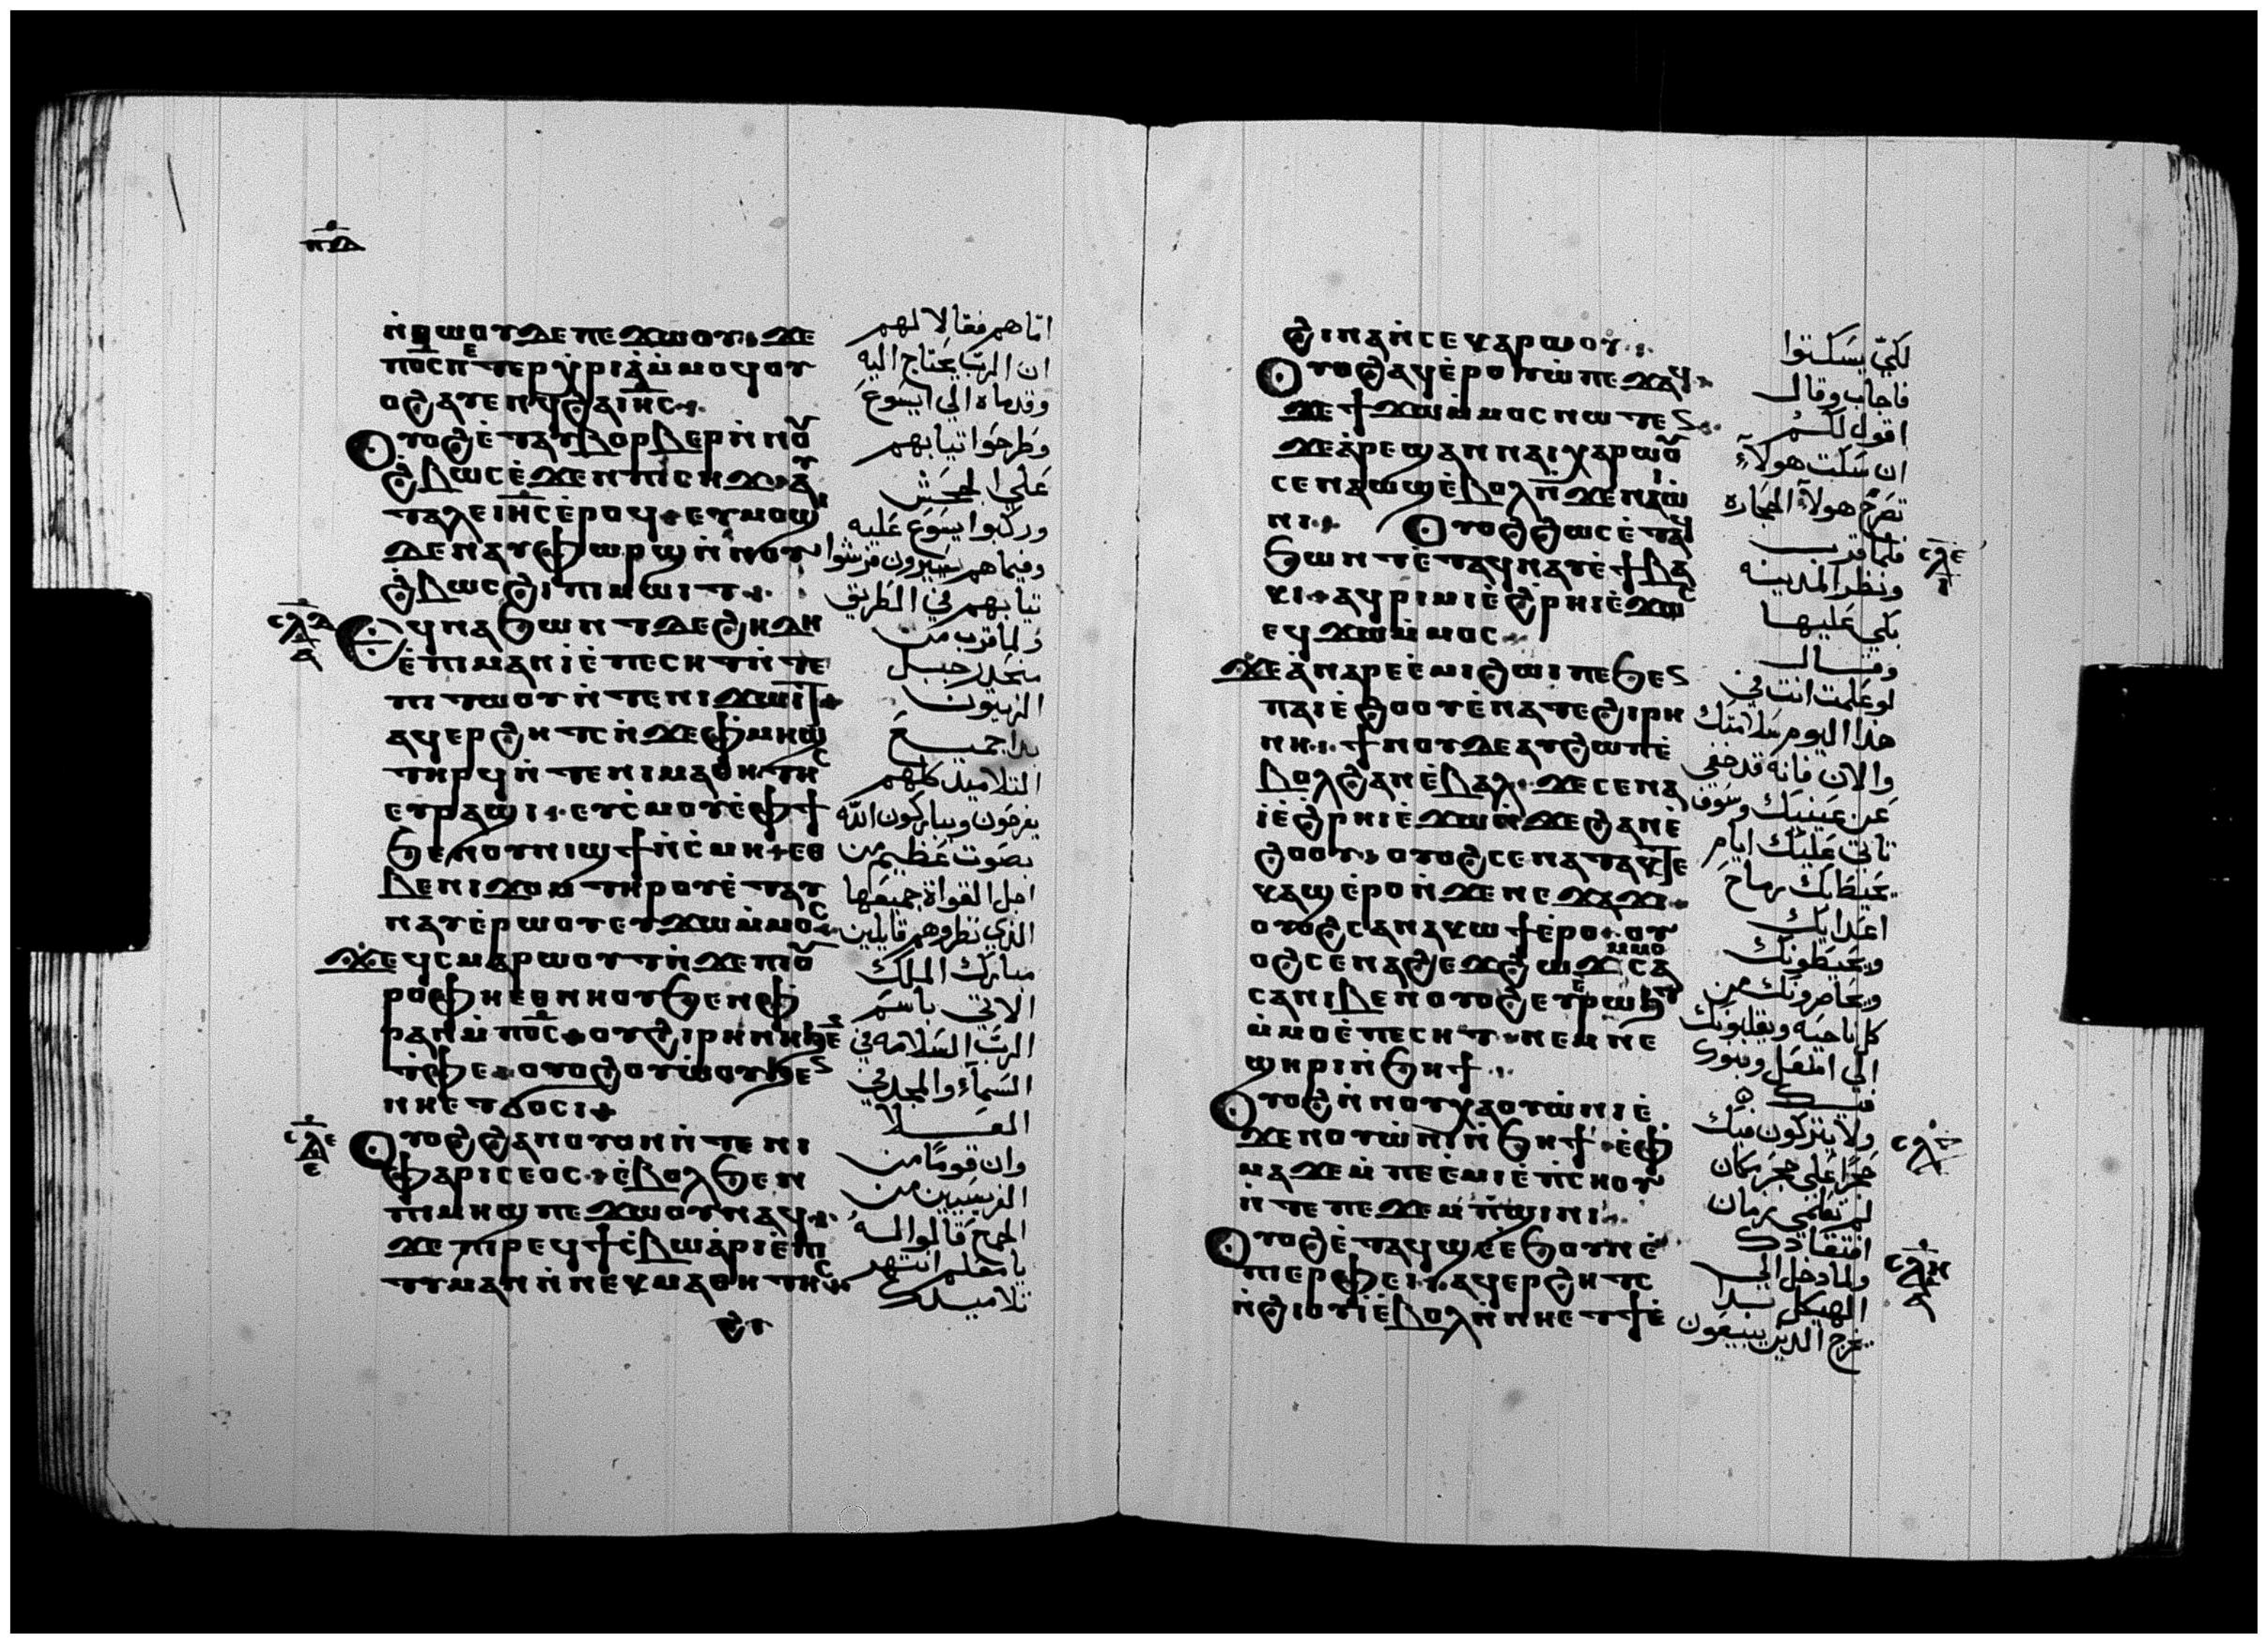 ⲛ̅ⲇ̅
ⲛ̇ⲑⲱⲟⲩ ⲇⲉ ⲡⲉϫⲱⲟⲩ ϫⲉ
ⲡⲟ̅ⲥ̅ ⲡⲉⲧⲉⲣⲭ̇ⲣⲓⲁ̇ ⲙ̇ⲙⲟϥ ⲟⲩ
ⲟϩ ⲁⲩⲉⲛϥ ϩⲁ ⲓⲏ̅ⲥ̅
ⲟⲩⲟϩ ⲉ̇ⲧⲁⲩⲃⲟⲣⲃⲉⲣ ⲛ̇ⲛⲟⲩ
ϩ̇ⲃⲱⲥ ⲉ̇ϫⲉⲛ ⲡⲓⲥⲏϫ ⲁⲩ
ⲧⲁⲗⲉ ⲓⲏ̅ⲥ̅ ⲉ̇ⲣⲟϥ ⲉⲩⲙⲟϣ
ⲇⲉ ⲛⲁⲩⲫⲱⲣϣ ⲛ̇ⲛⲟⲩ
ϩ̇ⲃⲱⲥ ϩⲓ ⲡⲓⲙⲱⲓⲧ
ⲥ̅ⲗ̅ⲇ̅ ⲁ
ⲉϥⲛⲁϧⲱⲛⲧ ⲇⲉ ϩⲏⲇⲏ
ⲉ̇ⲡⲓⲙⲁⲛⲓ̇ ⲉ̇ⲡⲉⲥⲏⲧ ⲛ̇ⲧⲉ
ⲡⲓⲧⲱⲟⲩ ⲛ̇ⲧⲉ ⲛⲓϫⲱⲓⲧ
ⲁϥⲉⲣϩⲏⲧⲥ ⲛ̇ϫⲉ ⲫ̇ⲙⲏϣ
ⲧⲏⲣϥ ⲛ̇ⲧⲉ ⲛⲓⲙⲁⲑⲏⲧⲏⲥ
ⲉⲩⲣⲁϣⲓ ⲉⲩⲥ̇ⲙⲟⲩ ⲉ̇ⲫϯ
ϧⲉⲛ ⲟⲩⲛⲓϣϯ ⲛ̇ⲥ̇ⲙⲏ ⲉⲑ
ⲃⲉ ⲛⲓϫⲟⲙ ⲧⲏⲣⲟⲩ ⲉ̇ⲧⲁⲩ
ⲛⲁⲩ ⲉ̇ⲣⲱⲟⲩ ⲉⲩϫⲱ ⲙ̇ⲙⲟⲥ
ϫⲉ ϥⲥⲙⲁⲣⲱⲟⲩⲧ ⲛ̇ϫⲉ ⲡⲓⲟⲩ
ⲣⲟ ⲫⲏ ⲉⲑⲛⲏⲟⲩ ϧⲉⲛ ⲫ̇
ⲣⲁⲛ ⲙ̇ⲡⲟ̅ⲥ̅ ⲟⲩϩⲓⲣⲏⲛⲏ ϧⲉⲛ
ⲧ̇ⲫⲉ ⲟⲩⲟϩ ⲟⲩⲱ̇ⲟⲩ ϧⲉⲛ
ⲛⲏ ⲉⲧϭⲟⲥⲓ
ⲥ̅ⲗ̅ⲉ̅ ⲉ
ⲟⲩⲟϩ ϩⲁⲛⲟⲩⲟⲛ ⲛ̇ⲧⲉ ⲛⲓ
ⲫⲁⲣⲓⲥⲉⲟⲥ ⲉ̇ⲃⲟⲗ ϧⲉⲛ
ⲡⲓⲙⲏϣ ⲡⲉϫⲱⲟⲩ ⲛⲁϥ
ϫⲉ ⲡⲓⲣⲉϥϯⲥ̇ⲃⲱ ⲁ̇ⲣⲓⲉ̇ⲡⲓ
ⲧⲓⲙⲁⲛ ⲛ̇ⲛⲉⲕⲙⲁⲑⲏⲧⲏⲥ
امّا هم فقالا لهم
ان الرب يحتاج اليه
وقدماه الي ايسوع
وطرحوا تيابهم
علي الجحش
وركبوا ايسوع عليه
وفيما هم يسيرون فرشوا
تيابهم في الطريق
ولما قرب من
منحدر جبل
الزيتون
بدا جميع
التلاميد كلهم
يفرحون ويباركون الله
بصوت عظيم من
اجل القواة جميعها
الذي نظروهم قايلين
مبارك الملك
الاتي باسم
الرب السلامه في
السماء والمجد في
العلا
وان قومًا من
الفريسيين من
الجمع قالوا له
يا معلم انتهر
تلاميدك
ϩⲓ̇ⲛⲁ ⲛ̇ⲥⲉⲭⲁⲣⲱⲟⲩ
ⲟⲩⲟϩ ⲁϥⲉ̇ⲣⲟⲩⲱ̇ ⲡⲉϫⲁϥ
ϫⲉ ϯϫⲱ ⲙ̇ⲙⲟⲥ ⲛⲱⲧⲉⲛ
ϫⲉ ⲁ̇ⲣⲉϣⲁⲛ ⲛⲁⲓ ⲭⲁⲣⲱⲟⲩ
ⲥⲉⲛⲁⲱϣ ⲉ̇ⲃⲟⲗ ⲛ̇ϫⲉ ⲛⲁⲓⲱ̇
ⲛⲓ ⲟⲩⲟϩ ϩⲱⲥ ⲉ̇ⲧⲁϥ
ϧⲱⲛⲧ ⲉ̇ⲧⲁϥⲛⲁⲩ ⲉ̇ϯⲃⲁ
ⲕⲓ ⲁϥⲣⲓⲙⲓ ⲉ̇ϩ̇ⲣⲏⲓ ⲉ̇ϫⲱⲥ
ⲉϥϫⲱ ⲙ̇ⲙⲟⲥ
ϫⲉ ⲉ̇ⲛⲁⲣⲉⲉ̇ⲙⲓ ϩⲱⲓ ⲡⲉ ϧⲉⲛ
ⲡⲁⲓⲉ̇ϩⲟⲟⲩ ⲉ̇ⲛⲁ ⲧⲉϩⲓⲣⲏ
ⲛⲏ ϯⲛⲟⲩ ⲇⲉ ⲁⲩϩⲱⲡ ⲉ̇
ⲃⲟⲗ ϩⲁ ⲛⲉⲃⲁⲗ ϫⲉ ⲥⲉⲛⲁ
ⲓ̇ ⲉ̇ϩ̇ⲣⲏⲓ ⲉ̇ϫⲱ ⲛ̇ϫⲉ ϩⲁⲛⲉ̇
ϩⲟⲟⲩ ⲟⲩⲟϩ ⲥⲉⲛⲁⲧⲁⲕⲧⲉ
ⲕⲁϣ ⲉ̇ⲣⲟ ⲛ̇ϫⲉ ⲛⲉϫⲁϫⲓ
ⲟⲩⲟϩ ⲥⲁⲛⲁⲕⲱϯ ⲉ̇ⲣⲟ ⲟⲩ
ⲟϩ ⲥⲉⲛⲁϩⲉϫϩⲱϫ ⲙⲙⲟ ⲥⲁ
ⲥⲁ ⲛⲓⲃⲉⲛ ⲟⲩⲟϩ ⲉⲩⲉ̇ⲣⲱϧⲧ
ⲙ̇ⲙⲟ ⲉ̇ⲡⲉⲥⲏⲧ ⲛⲉⲙ ⲛⲉ
ϣⲏⲣⲓ ⲛ̇ϧⲏϯ
ⲟⲩⲟϩ ⲛ̇ⲛⲟⲩⲭⲁ ⲟⲩⲱ̇ⲛⲓ ⲉ̇
ϫⲉⲛ ⲟⲩⲱ̇ⲛⲓ ⲛ̇ϧⲏϯ ⲉ̇ⲫ̇
ⲙⲁ ϫⲉ ⲙ̇ⲡⲉⲉ̇ⲙⲓ ⲉ̇ⲡ̇ⲥⲏⲟⲩ
ⲛ̇ⲧⲉ ⲡⲉϫⲉⲙⲡ̇ϣⲓⲛⲓ
ⲟⲩⲟϩ ⲉ̇ⲧⲁϥϣⲉ ⲉ̇ϧⲟⲩⲛ ⲉ̇
ⲡⲓⲉⲣⲫⲉⲓ ⲁϥⲉⲣϩⲏⲧⲥ
ⲛ̇ϩⲓⲟⲩⲓ̇ ⲉ̇ⲃⲟⲗ ⲛ̇ⲛⲏ ⲉⲧϯ ⲉ̇
لكي يسكتوا
فاجاب وقال
اقول لكم
ان سكت هولاء
تصرخ هولاء الحجاره
فلما قرب
ونظر المدينه
بكي عليها
وقال
لو علمت انت في
هذا اليوم سلامتك
والان فانه قد خفي
عن عينيك وسوف
تاتي عليك ايام
اعدايك
ويحيطونك
ويحاصرونك من
كل ناحيه ويقلبونك
الي اسفل وبنوك
فيك
ولا يتركون فيك
حجرًا علي حجر مكان
لم تعلمي زمان
افتقادك
ولما دخل الي
الهيكل بدا
يخرج الذين يبيعون